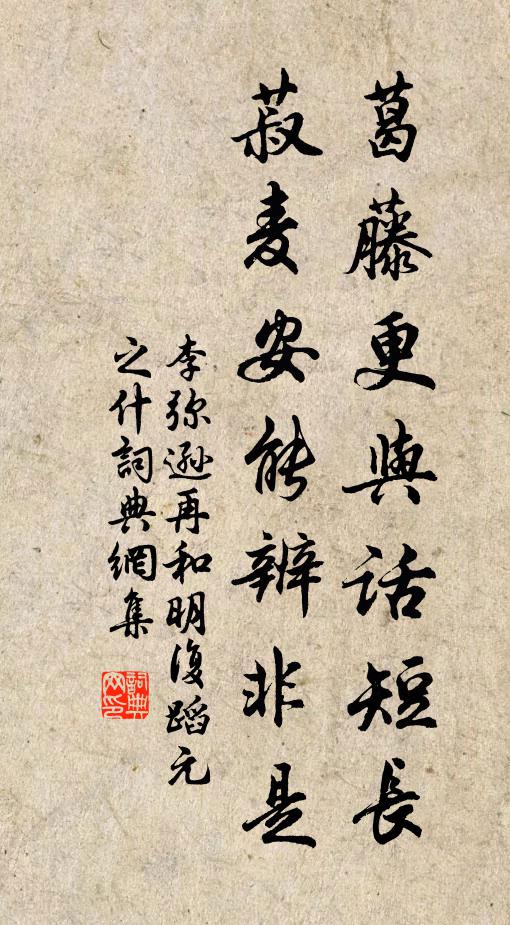 葛藤更與話短長
菽麦安能辨非是
李弥遜再和明復蹈元
之什詞典網集
詞典
网印